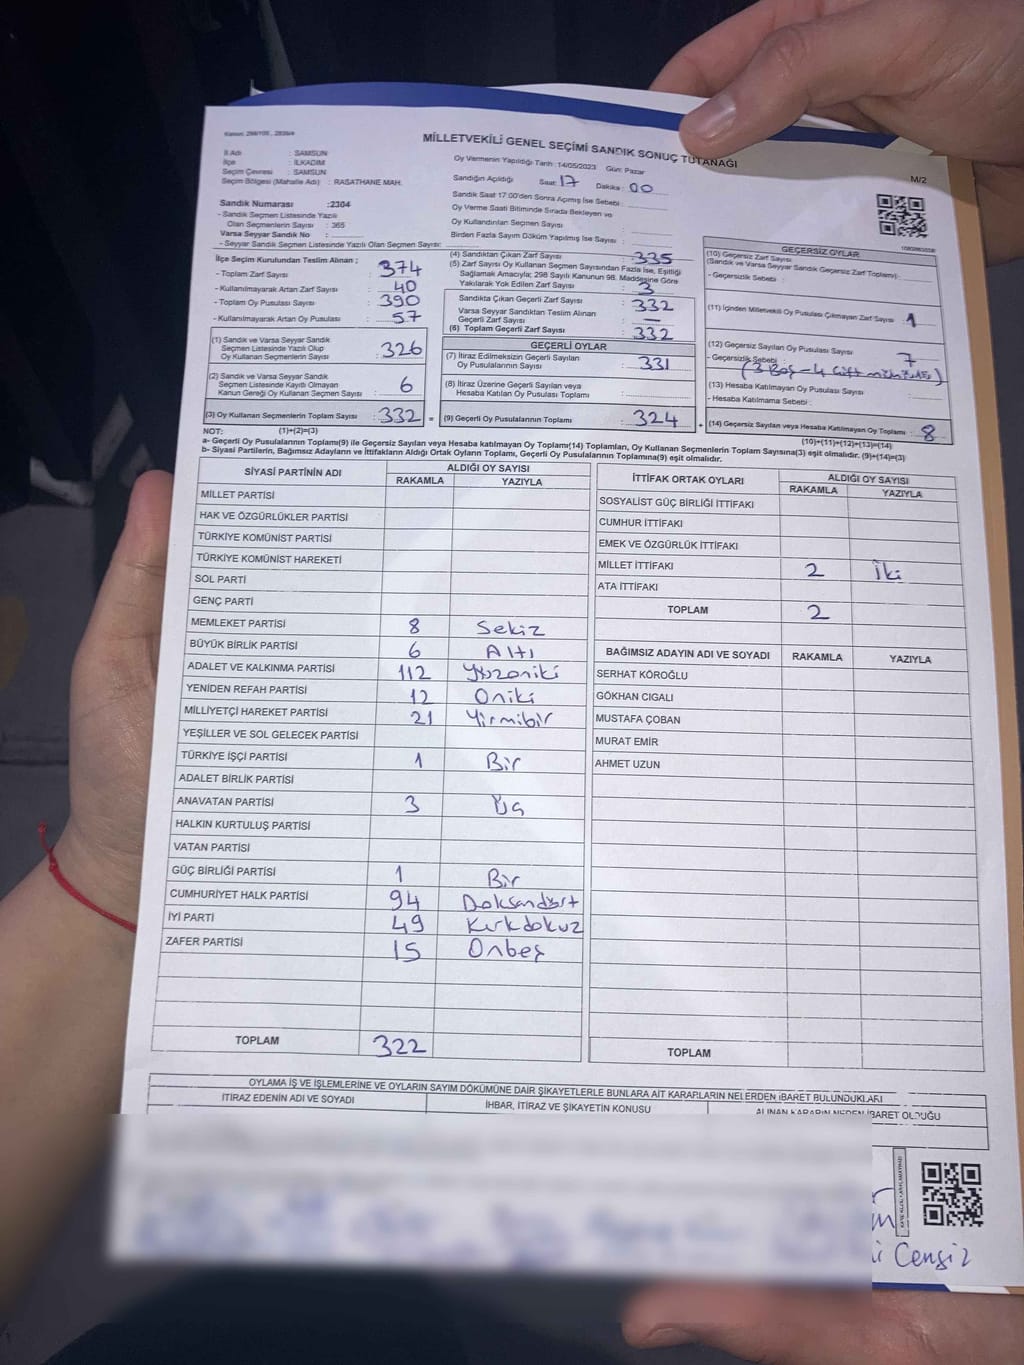 Kanun: 298/105 , 2839/e
MİLLETVEKİLİ GENEL SEÇİMİ SANDIK SONUÇ TUTANAĞI
M/2
İl Adı : SAMSUN
İlçe : İLKADIM
Seçim Çevresi : SAMSUN
Seçim Bölgesi (Mahalle Adı) : RASATHANE MAH.
Sandık Numarası :2304
- Sandık Seçmen Listesinde Yazılı
Olan Seçmenlerin Sayısı : 365
Varsa Seyyar Sandık No :
- Seyyar Sandık Seçmen Listesinde Yazılı Olan Seçmen Sayısı:
Oy Vermenin Yapıldığı Tarih :14/05/2023 Gün: Pazar
Sandığın Açıldığı Saat: 17 Dakika : 00
Sandık Saat 17:00'den Sonra Açılmış İse Sebebi :
Oy Verme Saati Bitiminde Sırada Bekleyen ve
Oy Kullandırılan Seçmen Sayısı :
Birden Fazla Sayım Döküm Yapılmış İse Sayısı :
İlçe Seçim Kurulundan Teslim Alınan ;
- Toplam Zarf Sayısı : 374
- Kullanılmayarak Artan Zarf Sayısı : 40
- Toplam Oy Pusulası Sayısı : 390
- Kullanılmayarak Artan Oy Pusulası : 57
(1) Sandık ve Varsa Seyyar Sandık
Seçmen Listesinde Yazılı Olup
Oy Kullanan Seçmenlerin Sayısı : 326
(2) Sandık ve Varsa Seyyar Sandık
Seçmen Listesinde Kayıtlı Olmayan
Kanun Gereği Oy Kullanan Seçmen Sayısı : 6
(3) Oy Kullanan Seçmenlerin Toplam Sayısı : 332 =
(4) Sandıktan Çıkan Zarf Sayısı : 335
(5) Zarf Sayısı Oy Kullanan Seçmen Sayısından Fazla İse, Eşitliği
Sağlamak Amacıyla; 298 Sayılı Kanunun 98. Maddesine Göre
Yakılarak Yok Edilen Zarf Sayısı : 3
Sandıkta Çıkan Geçerli Zarf Sayısı : 332
Varsa Seyyar Sandıktan Teslim Alınan
Geçerli Zarf Sayısı : —
(6) Toplam Geçerli Zarf Sayısı : 332
GEÇERLİ OYLAR
(7) İtiraz Edilmeksizin Geçerli Sayılan
Oy Pusulalarının Sayısı : 331
(8) İtiraz Üzerine Geçerli Sayılan veya
Hesaba Katılan Oy Pusulaları Toplamı :
(9) Geçerli Oy Pusulalarının Toplamı : 324 +
GEÇERSİZ OYLAR
(10) Geçersiz Zarf Sayısı
(Sandık ve Varsa Seyyar Sandık Geçersiz Zarf Toplamı) :
- Geçersizlik Sebebi :
(11) İçinden Milletvekili Oy Pusulası Çıkmayan Zarf Sayısı : 1
(12) Geçersiz Sayılan Oy Pusulası Sayısı : 7
- Geçersizlik Sebebi : (3 Boş - 4 Çift mühür)
(13) Hesaba Katılmayan Oy Pusulası Sayısı :
- Hesaba Katılmama Sebebi :
(14) Geçersiz Sayılan veya Hesaba Katılmayan Oy Toplamı : 8
NOT: (1)+(2)=(3) (10)+(11)+(12)+(13)=(14)
a- Geçerli Oy Pusulalarının Toplamı(9) ile Geçersiz Sayılan veya Hesaba katılmayan Oy Toplamı(14) Toplamları, Oy Kullanan Seçmenlerin Toplam Sayısına(3) eşit olmalıdır. (9)+(14)=(3)
b- Siyasi Partilerin, Bağımsız Adayların ve İttifakların Aldığı Ortak Oyların Toplamı, Geçerli Oy Pusulalarının Toplamına(9) eşit olmalıdır.
SİYASİ PARTİNİN ADI ALDIĞI OY SAYISI
RAKAMLA YAZIYLA
MİLLET PARTİSİ
HAK VE ÖZGÜRLÜKLER PARTİSİ
TÜRKİYE KOMÜNİST PARTİSİ
TÜRKİYE KOMÜNİST HAREKETİ
SOL PARTİ
GENÇ PARTİ
MEMLEKET PARTİSİ 8 Sekiz
BÜYÜK BİRLİK PARTİSİ 6 Altı
ADALET VE KALKINMA PARTİSİ 112 Yüzoniki
YENİDEN REFAH PARTİSİ 12 Oniki
MİLLİYETÇİ HAREKET PARTİSİ 21 Yirmibir
YEŞİLLER VE SOL GELECEK PARTİSİ
TÜRKİYE İŞÇİ PARTİSİ 1 Bir
ADALET BİRLİK PARTİSİ
ANAVATAN PARTİSİ 3 Üç
HALKIN KURTULUŞ PARTİSİ
VATAN PARTİSİ
GÜÇ BİRLİĞİ PARTİSİ 1 Bir
CUMHURİYET HALK PARTİSİ 94 Doksandört
İYİ PARTİ 49 Kırkdokuz
ZAFER PARTİSİ 15 Onbeş
TOPLAM 322
İTTİFAK ORTAK OYLARI ALDIĞI OY SAYISI
RAKAMLA YAZIYLA
SOSYALİST GÜÇ BİRLİĞİ İTTİFAKI
CUMHUR İTTİFAKI
EMEK VE ÖZGÜRLÜK İTTİFAKI
MİLLET İTTİFAKI 2 İki
ATA İTTİFAKI
TOPLAM 2
BAĞIMSIZ ADAYIN ADI VE SOYADI RAKAMLA YAZIYLA
SERHAT KÖROĞLU
GÖKHAN CIGALI
MUSTAFA ÇOBAN
MURAT EMİR
AHMET UZUN
TOPLAM
OYLAMA İŞ VE İŞLEMLERİNE VE OYLARIN SAYIM DÖKÜMÜNE DAİR ŞİKAYETLERLE BUNLARA AİT KARARLARIN NELERDEN İBARET BULUNDUKLARI
İTİRAZ EDENİN ADI VE SOYADI İHBAR, İTİRAZ VE ŞİKAYETİN KONUSU ALINAN KARARIN NEDEN İBARET OLDUĞU
Cengiz